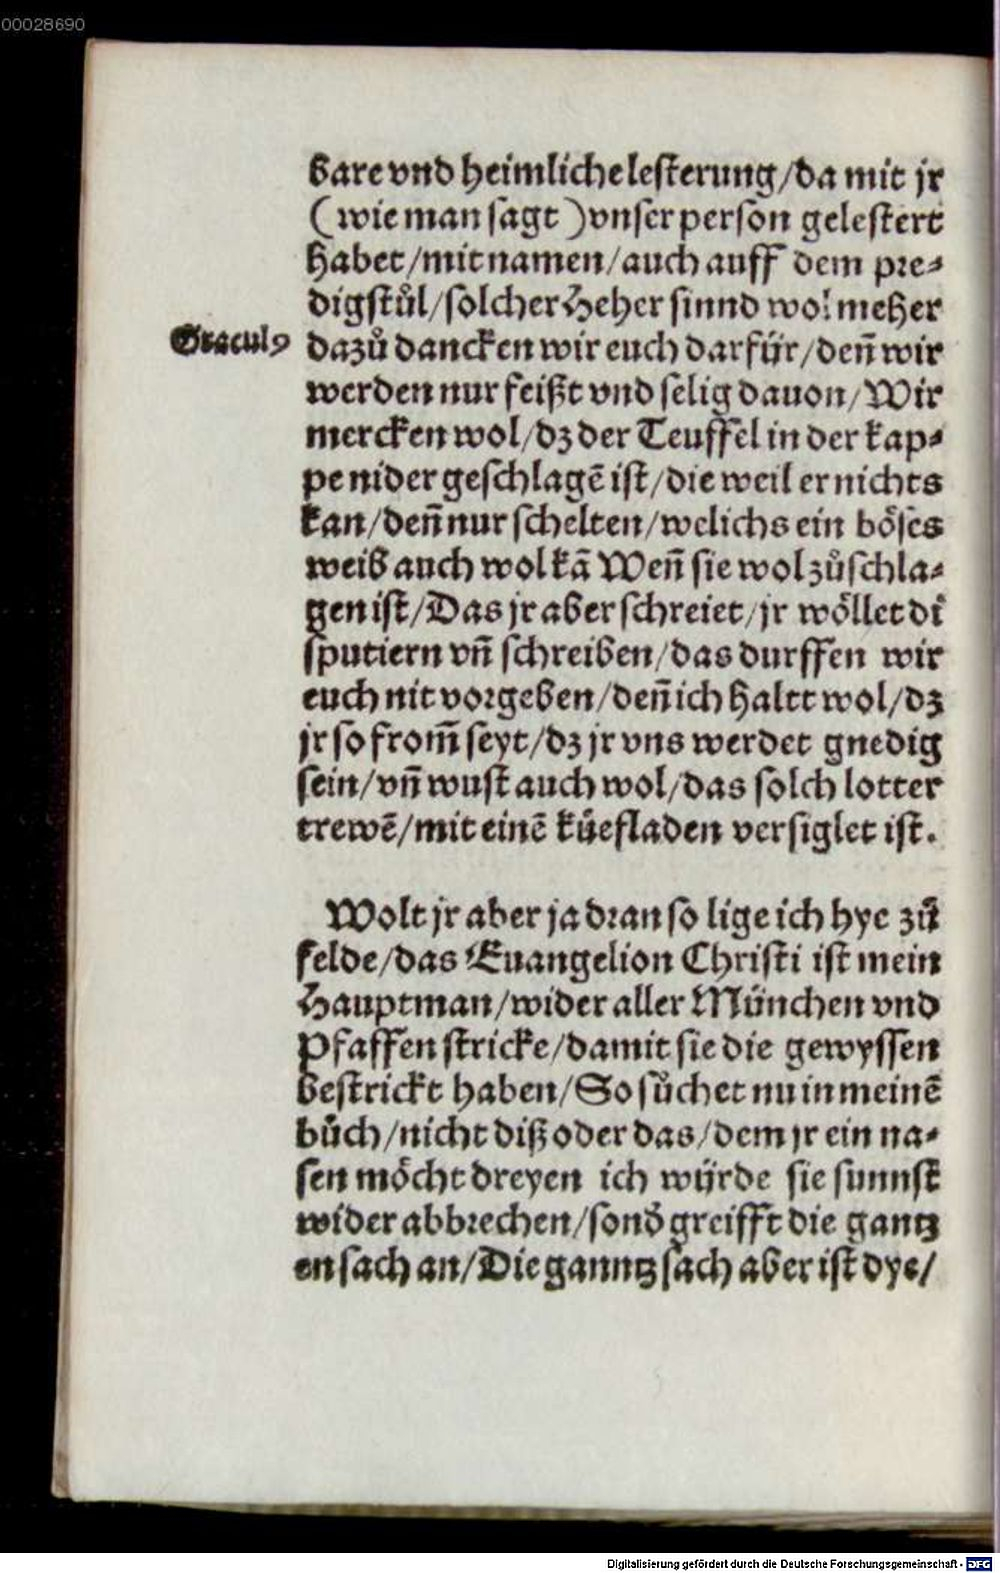 00028690
bare vnd heimliche lesterung/da mit jr
(wie man sagt) vnser person gelestert
habet/mit namen/auch auff dem pre⸗
digstůl/solcher Heher sinnd wol meher
Graculꝰ
dazů dancken wir euch darfür/deñ wir
werden nur feißt vnd selig dauon/Wir
mercken wol/dz der Teuffel in der kap⸗
pe nider geschlagē ist/die weil er nichts
kan/deñ nur schelten/welichs ein böses
weib auch wol kā Weñ sie wol zůschla⸗
gen ist/Das jr aber schreiet/jr wöllet di
sputiern vñ schreiben/das durffen wir
euch nit vorgeben/deñ ich haltt wol/dz
jr so from̄ seyt/dz jr vns werdet gnedig
sein/vñ wust auch wol/das solch lotter
trewē/mit einē küefladen versiglet ist.
Wolt jr aber ja dran so lige ich hye zů
felde/das Euangelion Christi ist mein
Hauptman/wider aller München vnd
Pfaffen stricke/damit sie die gewyssen
bestrickt haben/So sůchet nu in meinē
bůch/nicht diß oder das/dem jr ein na⸗
sen möcht dreyen ich würde sie sunnst
wider abbrechen/sonđ greifft die gantz
en sach an/Die ganntz sach aber ist dye/
Digitalisierung gefördert durch die Deutsche Forschungsgemeinschaft - DFG